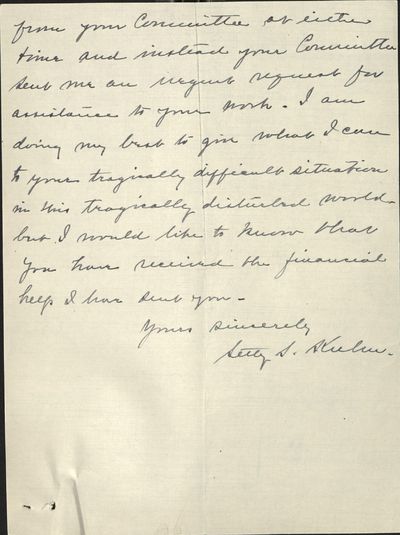 from your Committee at either
time and instead your Committee
sent me an urgent request for
assistance to your work - I am
doing my best to give what I can
to your tragically difficult situation
in this tragically disturbed world -
but I would like to know that
you have received the financial
help I have sent you -
Yours sincerely
Setty S. Kuhn -